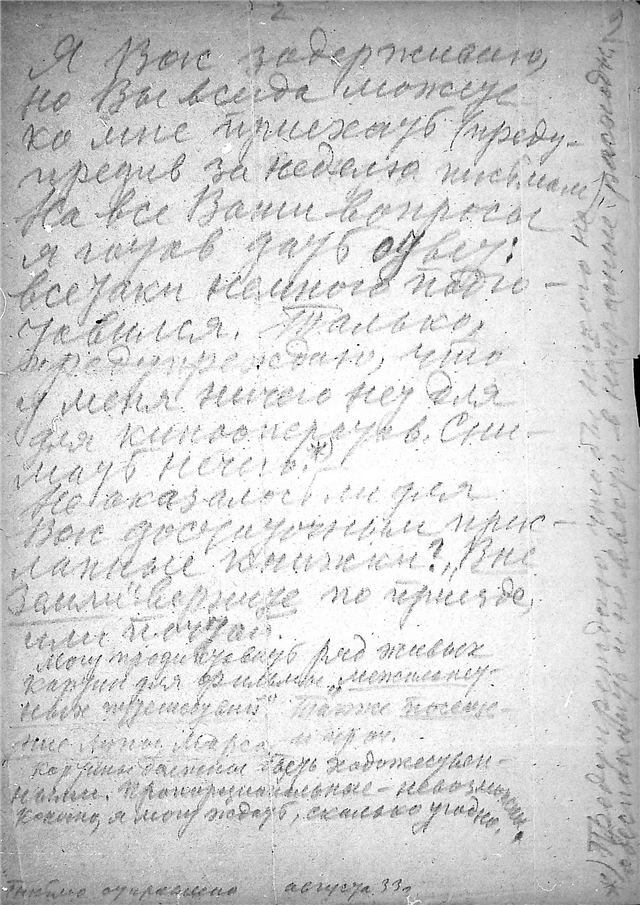 2
Я Вас задерживаю,
но Вы всегда можете
ко мне приехать (преду-
предив за неделю письмом)
На все Ваши вопросы
я готов дать ответ:
всетаки немного подго-
товился. Только,
предупреждаю, что
у меня ничего нет для
для кинооператов. Сни-
мать нечего.*)
Не оказалось ли для
Вас достаточным прис-
ланные книжки? „Вне
Земли" верните по приезде
или почтой.
Могу продиктовать ряд живых
картин для фильмы „межпланет-
ных путешествий" Также посеще-
ние Луны, Марса и проч.
Картины должны быть художествен-
ными.
Конечно, я могу ждать, сколько угодно.
*) Предупреждаю, чтобы никого не
беспокоить и не вводить в напрасные расходы.
Письмо отправлено августа 33 г.